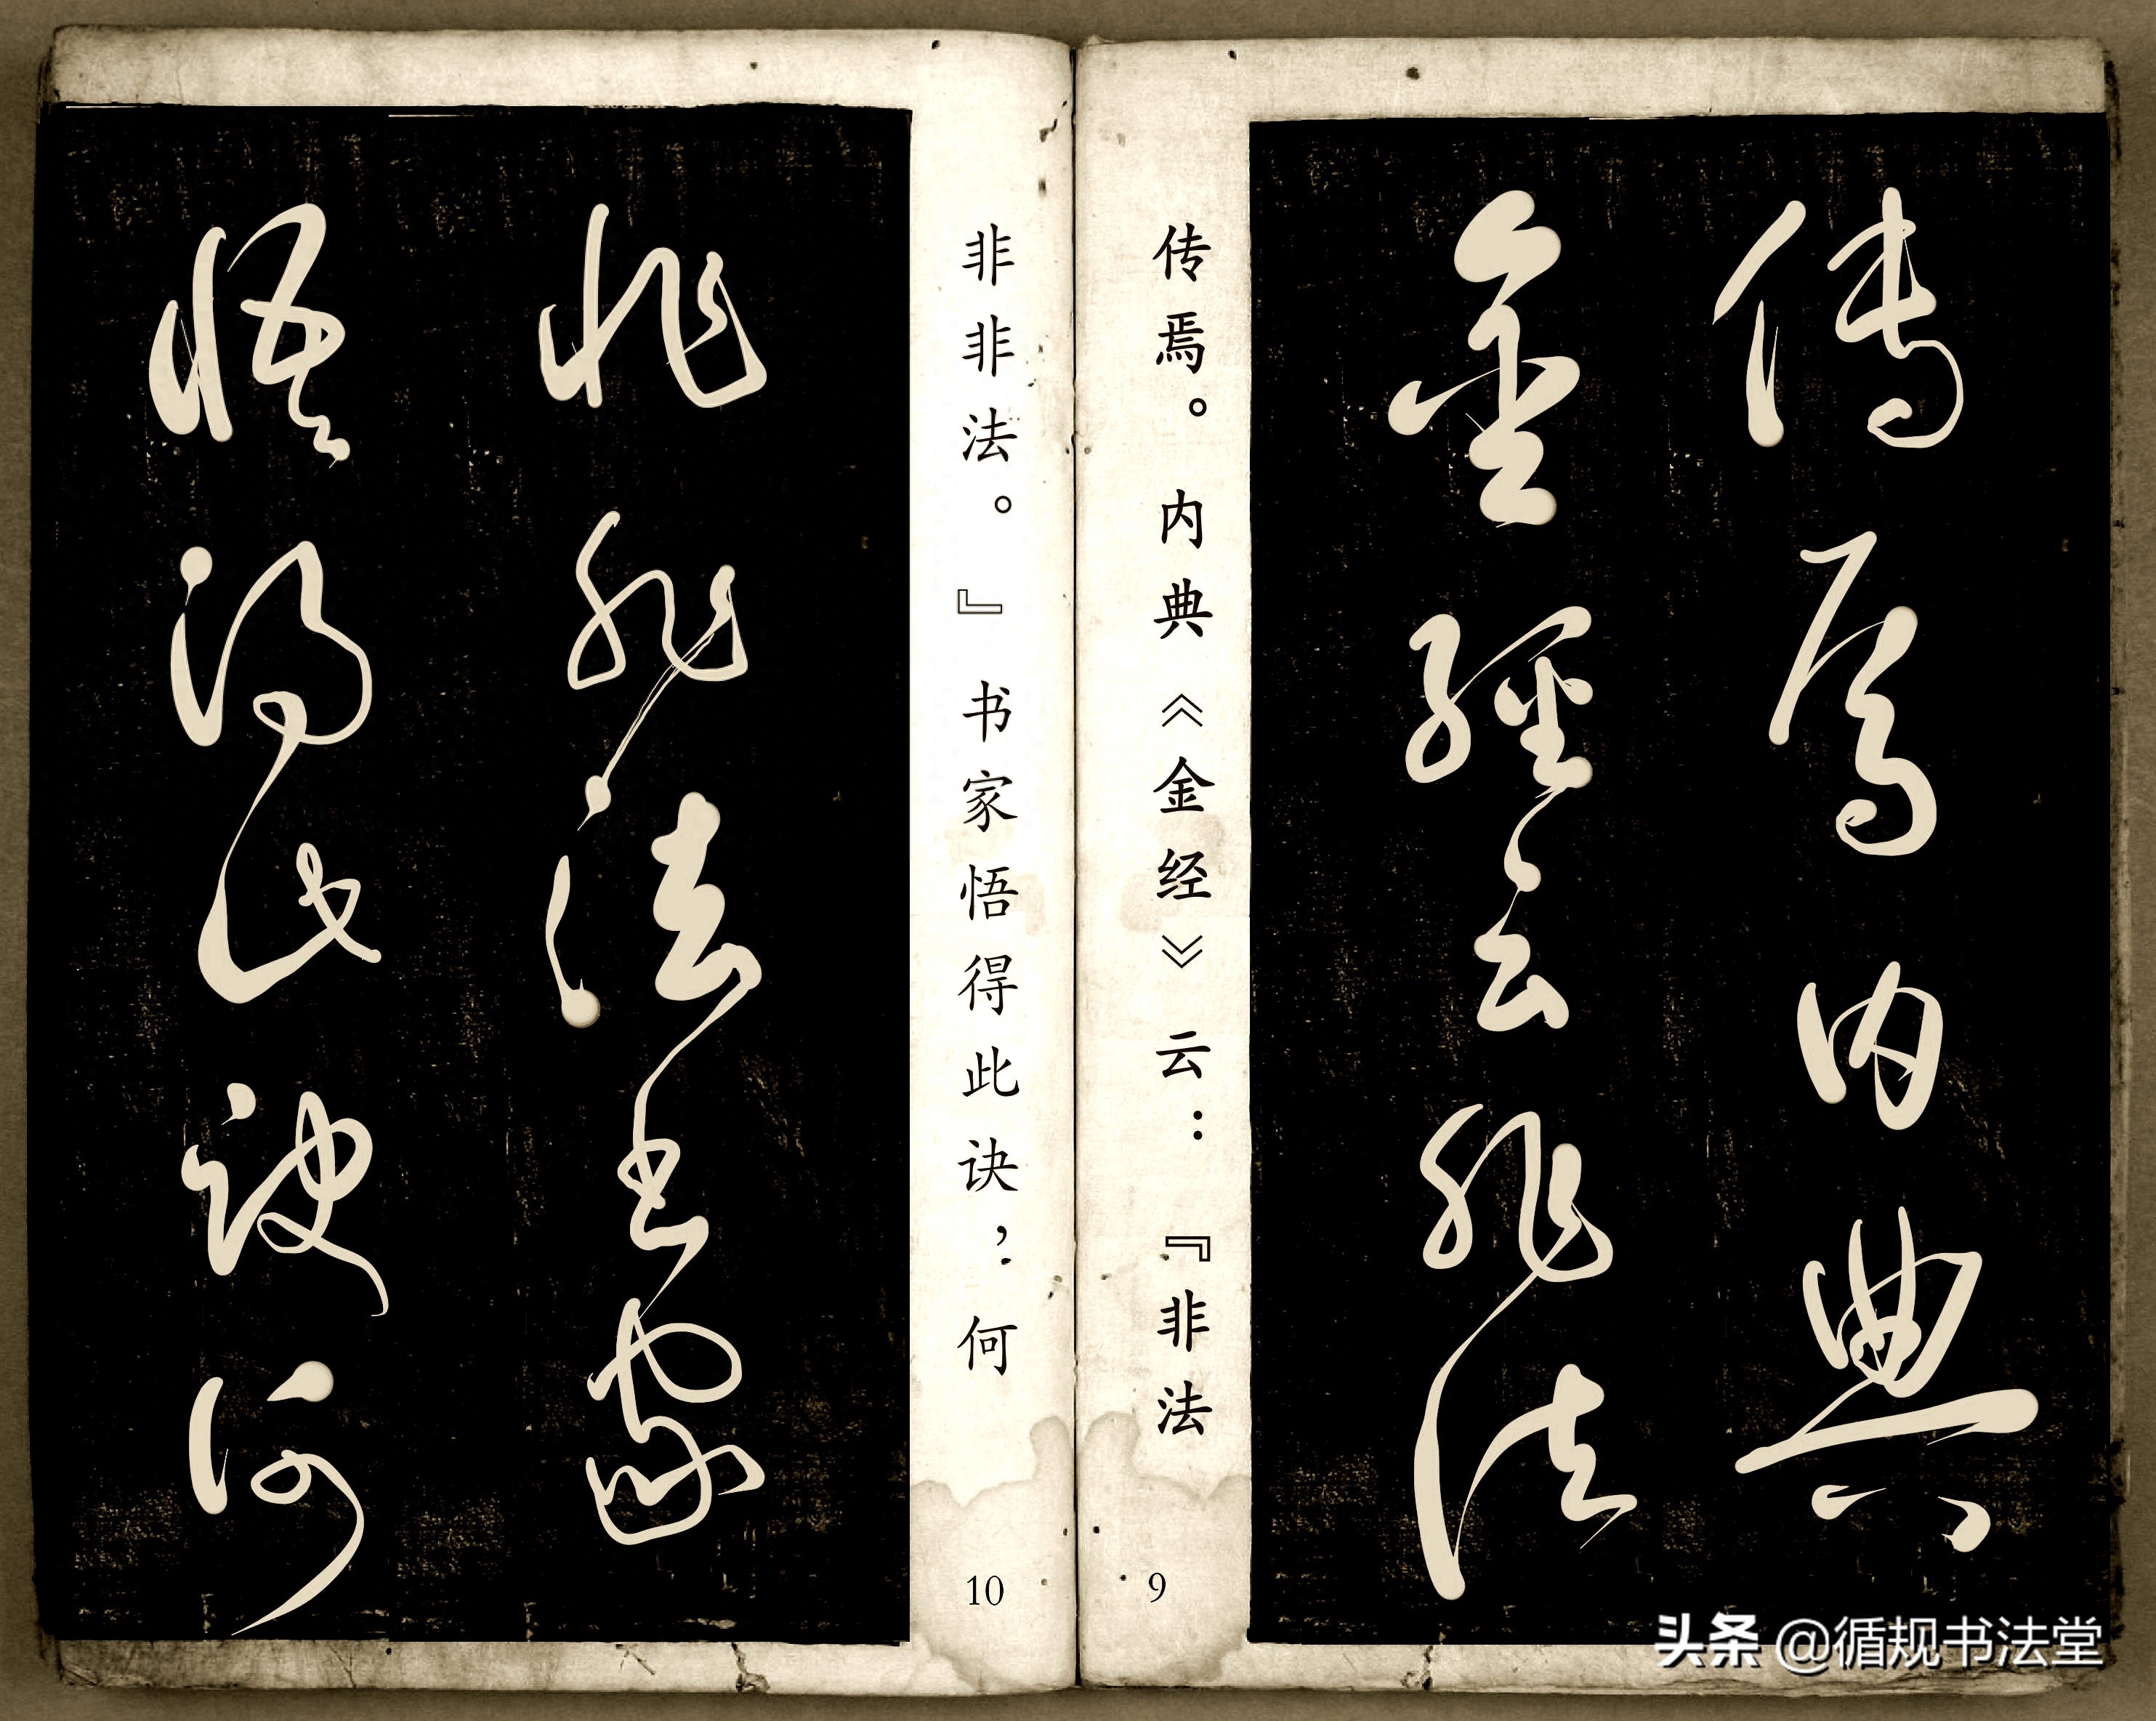 傳焉内典
金經云非法
传焉。内典《金经》云：『非法
9
非非法。』书家悟得此诀，何
10
非非法書家
悟得此訣何
头条 @循规书法堂